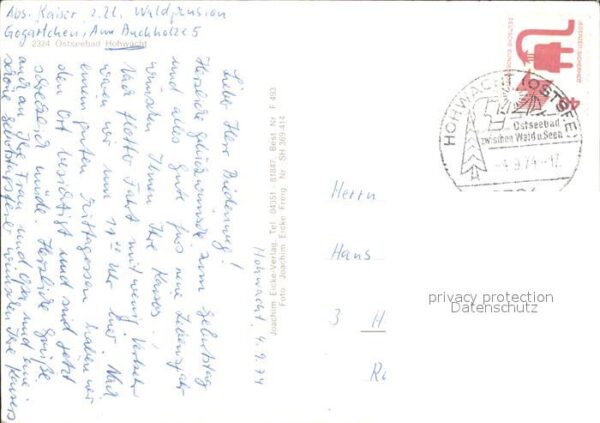 Abs. Kaiser z.Zt. Waldpension
Gogärtchen, Am Buchholz 5
2324 Ostseebad Hohwacht
Hohwacht, 4.9.74
Lieber Herr
Herzliche Glückwünsche zum Geburtstag
und alles Gute fürs neue Lebensjahr
wünschen Ihnen Ihre Kaisers!
Nach flotter Fahrt mit wenig Verkehr
waren wir um 11 Uhr hier. Nach
einem guten Mittagessen haben wir
den Ort besichtigt und sind jetzt
müde. Herzliche Grüße
auch an Ihre Frau und Opa und eine
schöne Geburtstagsfeier wünschen Ihre Kaisers
Joachim Eicke-Verlag, Tel. 04351 81847, Best. Nr. F 493
Foto Joachim Eicke Freig. Nr. SH 369-414
DEUTSCHE BUNDESPOST
JEDERZEIT SICHERHEIT
HOHWACHT (OSTSEE)
Ostseebad
zwischen Wald u. Seen
9.74
Herrn
Hans
3 H
privacy protection
Datenschutz